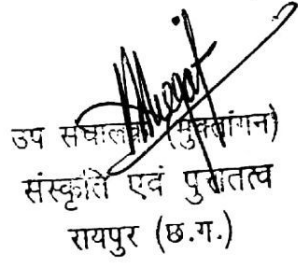 उप संचालक (मुक्तांगन)
संस्कृति एवं पुरातत्व
रायपुर (छ.ग.)